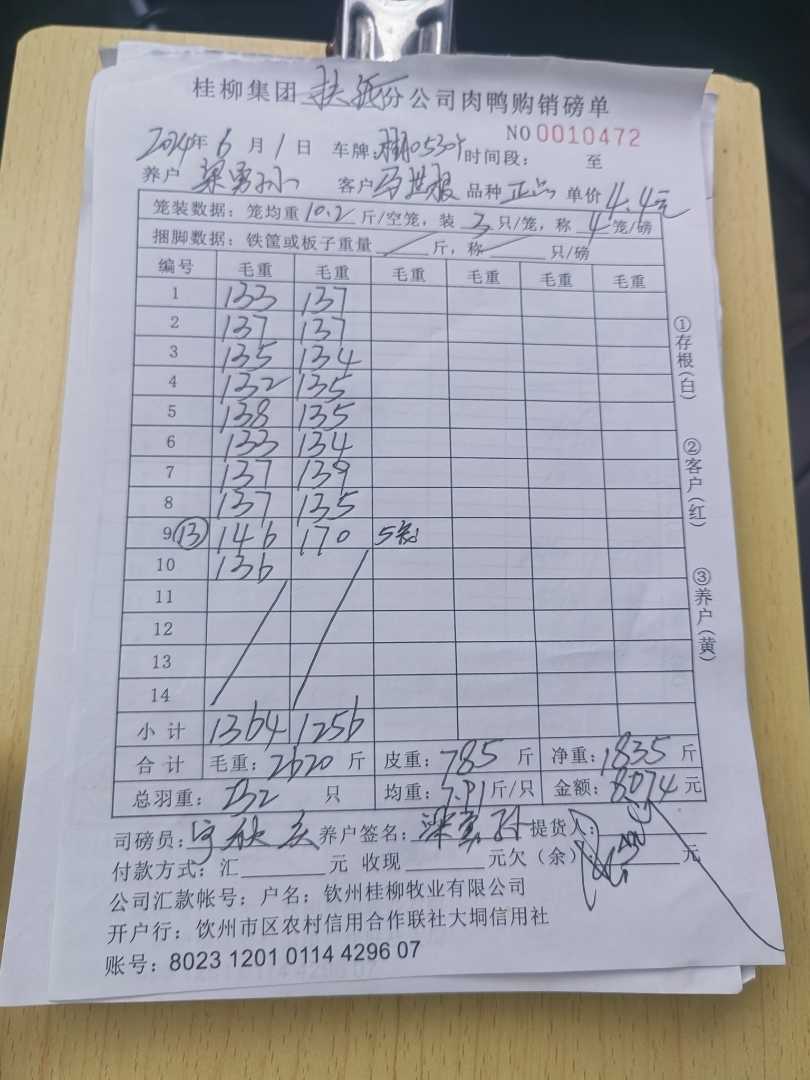 桂柳集团 扶绥分公司肉鸭购销磅单
NO 0010472
2024年 6月 1日 车牌: 时间段: 至
养户 梁勇孙 客户 马 品种 正品 单价 4.4元
笼装数据: 笼均重 10.2 斤/空笼, 装 3 只/笼, 称 4 笼/磅
捆脚数据: 铁筐或板子重量 斤, 称 只/磅
编号 毛重 毛重 毛重 毛重 毛重 毛重
1 133 137
2 137 137
3 135 134
4 132 135
5 138 135
6 133 134
7 137 139
8 137 135
9 ⑬ 146 170 5
10 136
11
12
13
14
小计 1364 1256
合计 毛重: 2620 斤 皮重: 785 斤 净重: 1835 斤
总羽重: 232 只 均重: 7.91 斤/只 金额: 8074 元
司磅员: 养户签名: 梁勇孙 提货人:
付款方式: 汇 元 收现 元欠(余) 元
公司汇款帐号: 户名: 钦州桂柳牧业有限公司
开户行: 钦州市区农村信用合作联社大垌信用社
账号: 8023 1201 0114 4296 07
①存根(白)
②客户(红)
③养户(黄)